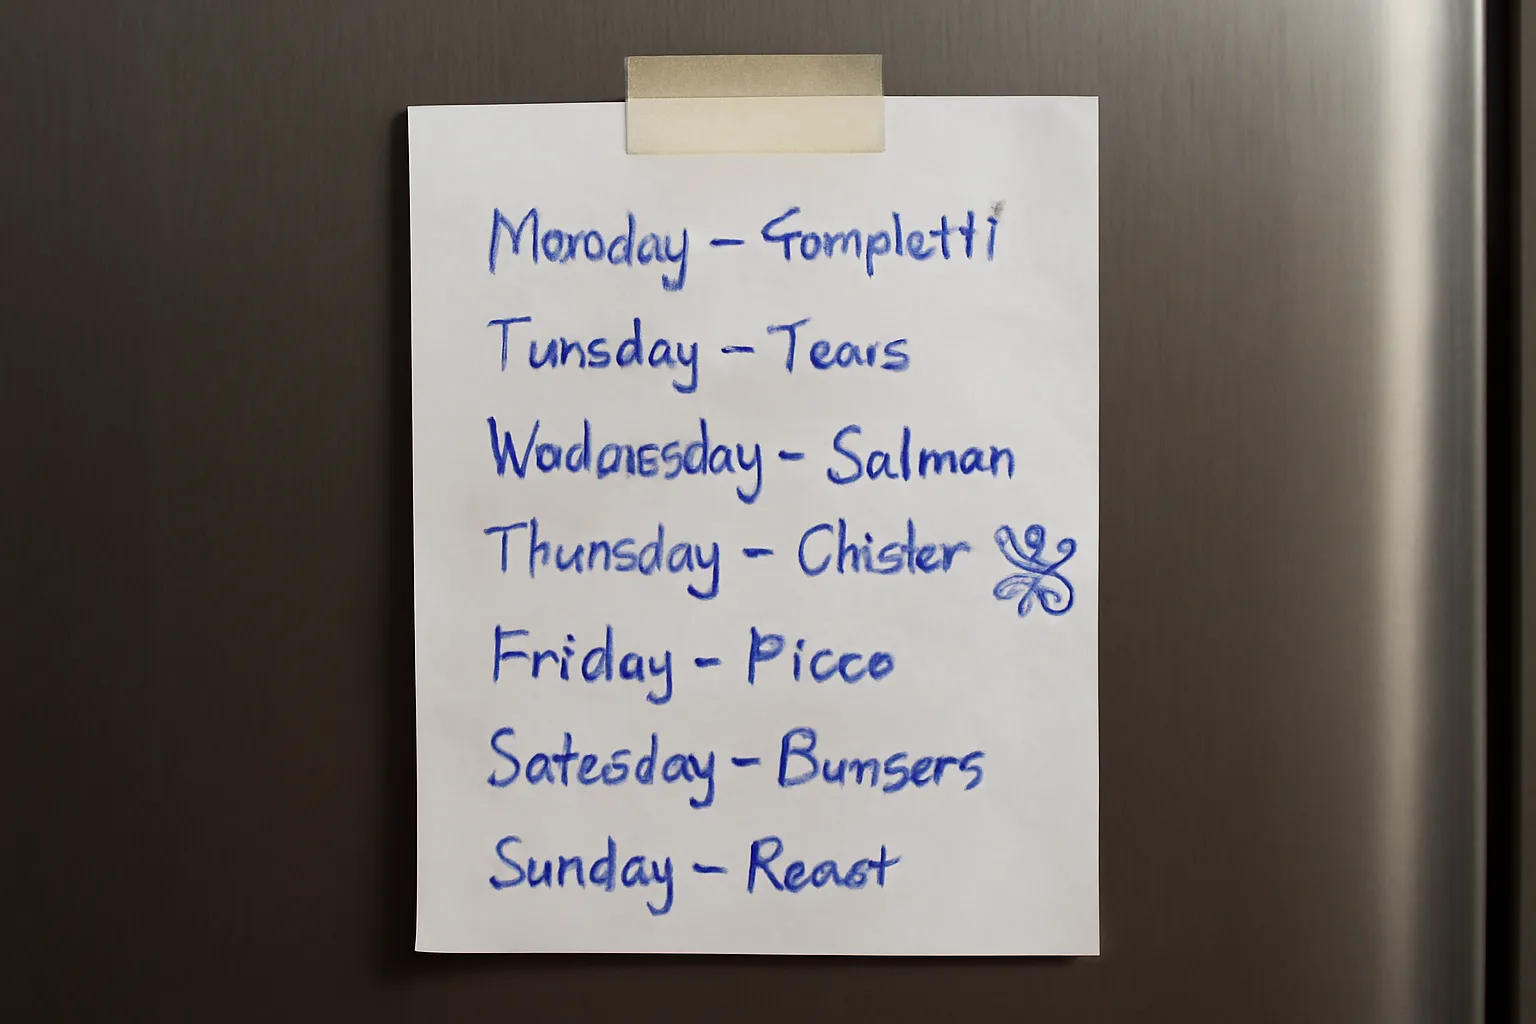 Moroday – Gompletti
Tunsday – Tears
Wadnesday – Salman
Thunsday – Chister
Friday – Picco
Satesday – Bumsers
Sunday – Reast